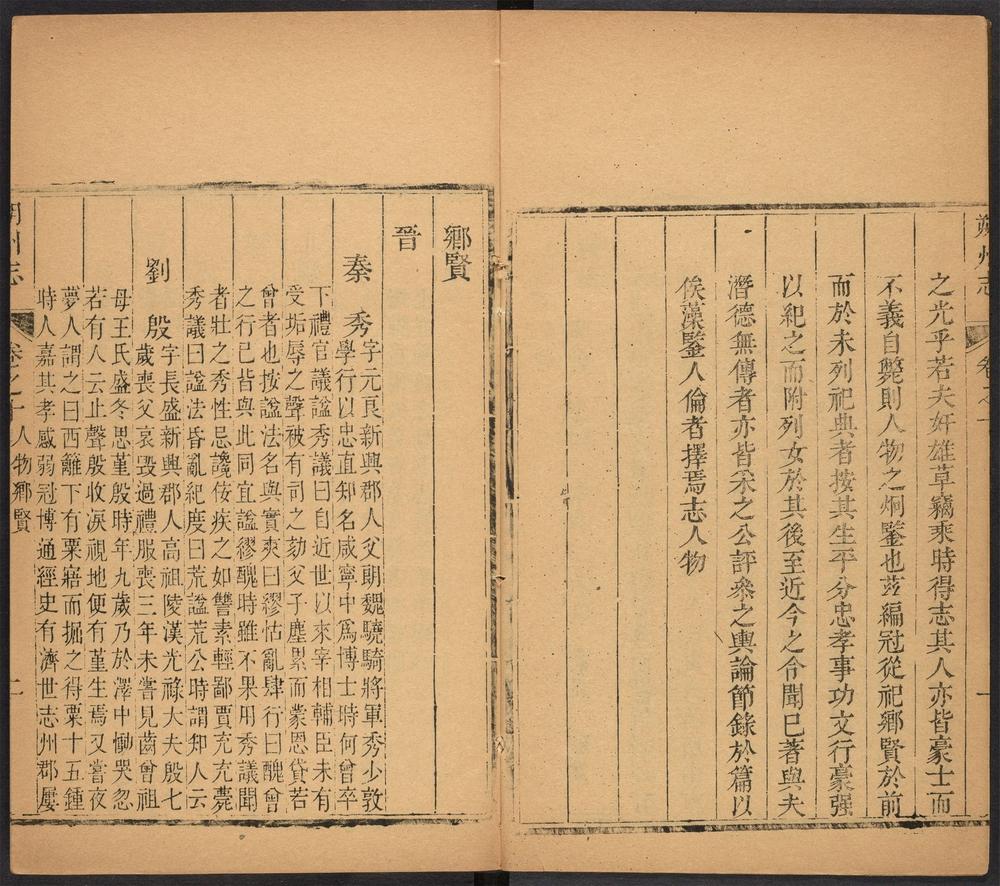 朔州志
卷之十
一
之光乎若夫奸雄草竊乘時得志其人亦皆豪士而
不義自斃則人物之炯鑒也茲編冠從祀鄉賢於前
而於未列祀典者按其生平分忠孝事功文行豪强
以紀之而附列女於其後至近今之令聞已著與夫
潛德無傳者亦皆采之公評叅之輿論節錄於篇以
俟藻鑒人倫者擇焉志人物
鄉賢
晉
秦秀字元良新興郡人父朗魏驍騎將軍秀少敦
學行以忠直知名咸寧中爲博士時何曾卒
下禮官議諡秀議曰自近世以來宰相輔臣未有
受垢辱之聲被有司之劾父子塵累而蒙恩貸若
曾者也按諡法名與實爽曰繆怙亂肆行曰醜曾
之行已皆與此同宜諡繆醜時雖不果用秀議聞
者壯之秀性忌讒佞疾之如讐素輕鄙賈充充薨
秀議曰諡法昏亂紀度曰荒諡荒公時謂知人云
劉殷字長盛新興郡人高祖陵漢光祿大夫殷七
歲喪父哀毀過禮服喪三年未嘗見齒曾祖
母王氏盛冬思堇殷時年九歲乃於澤中慟哭忽
若有人云止聲殷收淚視地便有堇生焉又嘗夜
夢人謂之曰西籬下有粟寤而掘之得粟十五鍾
時人嘉其孝感弱冠博通經史有濟世志州郡屢
朔州志
卷之十人物鄉賢
二